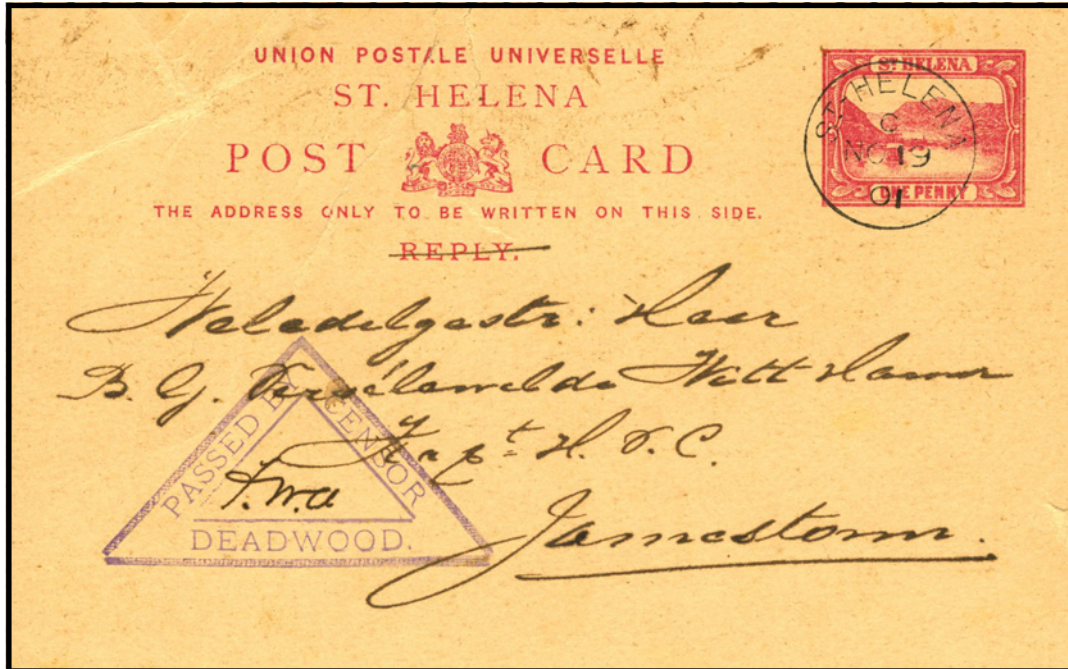 UNION POSTALE UNIVERSELLE
ST. HELENA
POST CARD
THE ADDRESS ONLY TO BE WRITTEN ON THIS SIDE.
REPLY.
ST HELENA
ONE PENNY
ST. HELENA
C
NO 19
01
Heer
B. G. Witt Hamer
Kapt. H. D. C.
Jamestown.
PASSED BY CENSOR
DEADWOOD.